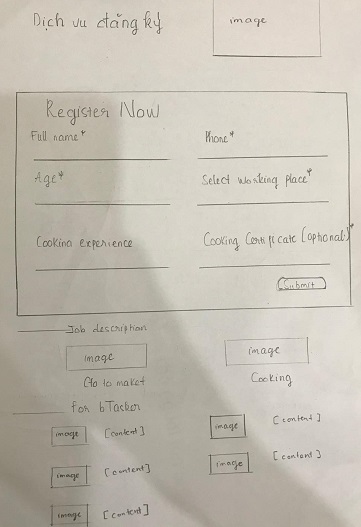 Dịch vụ đăng ký
image
Register Now
Full name*
Phone*
Age*
Select Working place*
Cooking experience
Cooking Certificate (optional)*
Submit
Job description
image
image
Go to maket
Cooking
for bTasker
image [content]
image [content]
image [content]
image [content]
image [content]